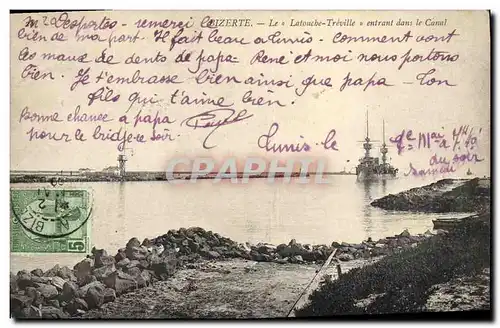 Mr Desportes – remercie le BIZERTE. — Le « Latouche-Tréville » entrant dans le Canal
bien de ma part. Il fait beau à Tunis. Comment vont
les maux de dents de papa – René et moi nous portons
bien. Je t'embrasse bien ainsi que papa – Ton
fils qui t'aime bien.
Bonne chance à papa
pour le bridge ce soir
Tunis le
Mai
du soir
Samedi
CPARAMA
BIZ
5